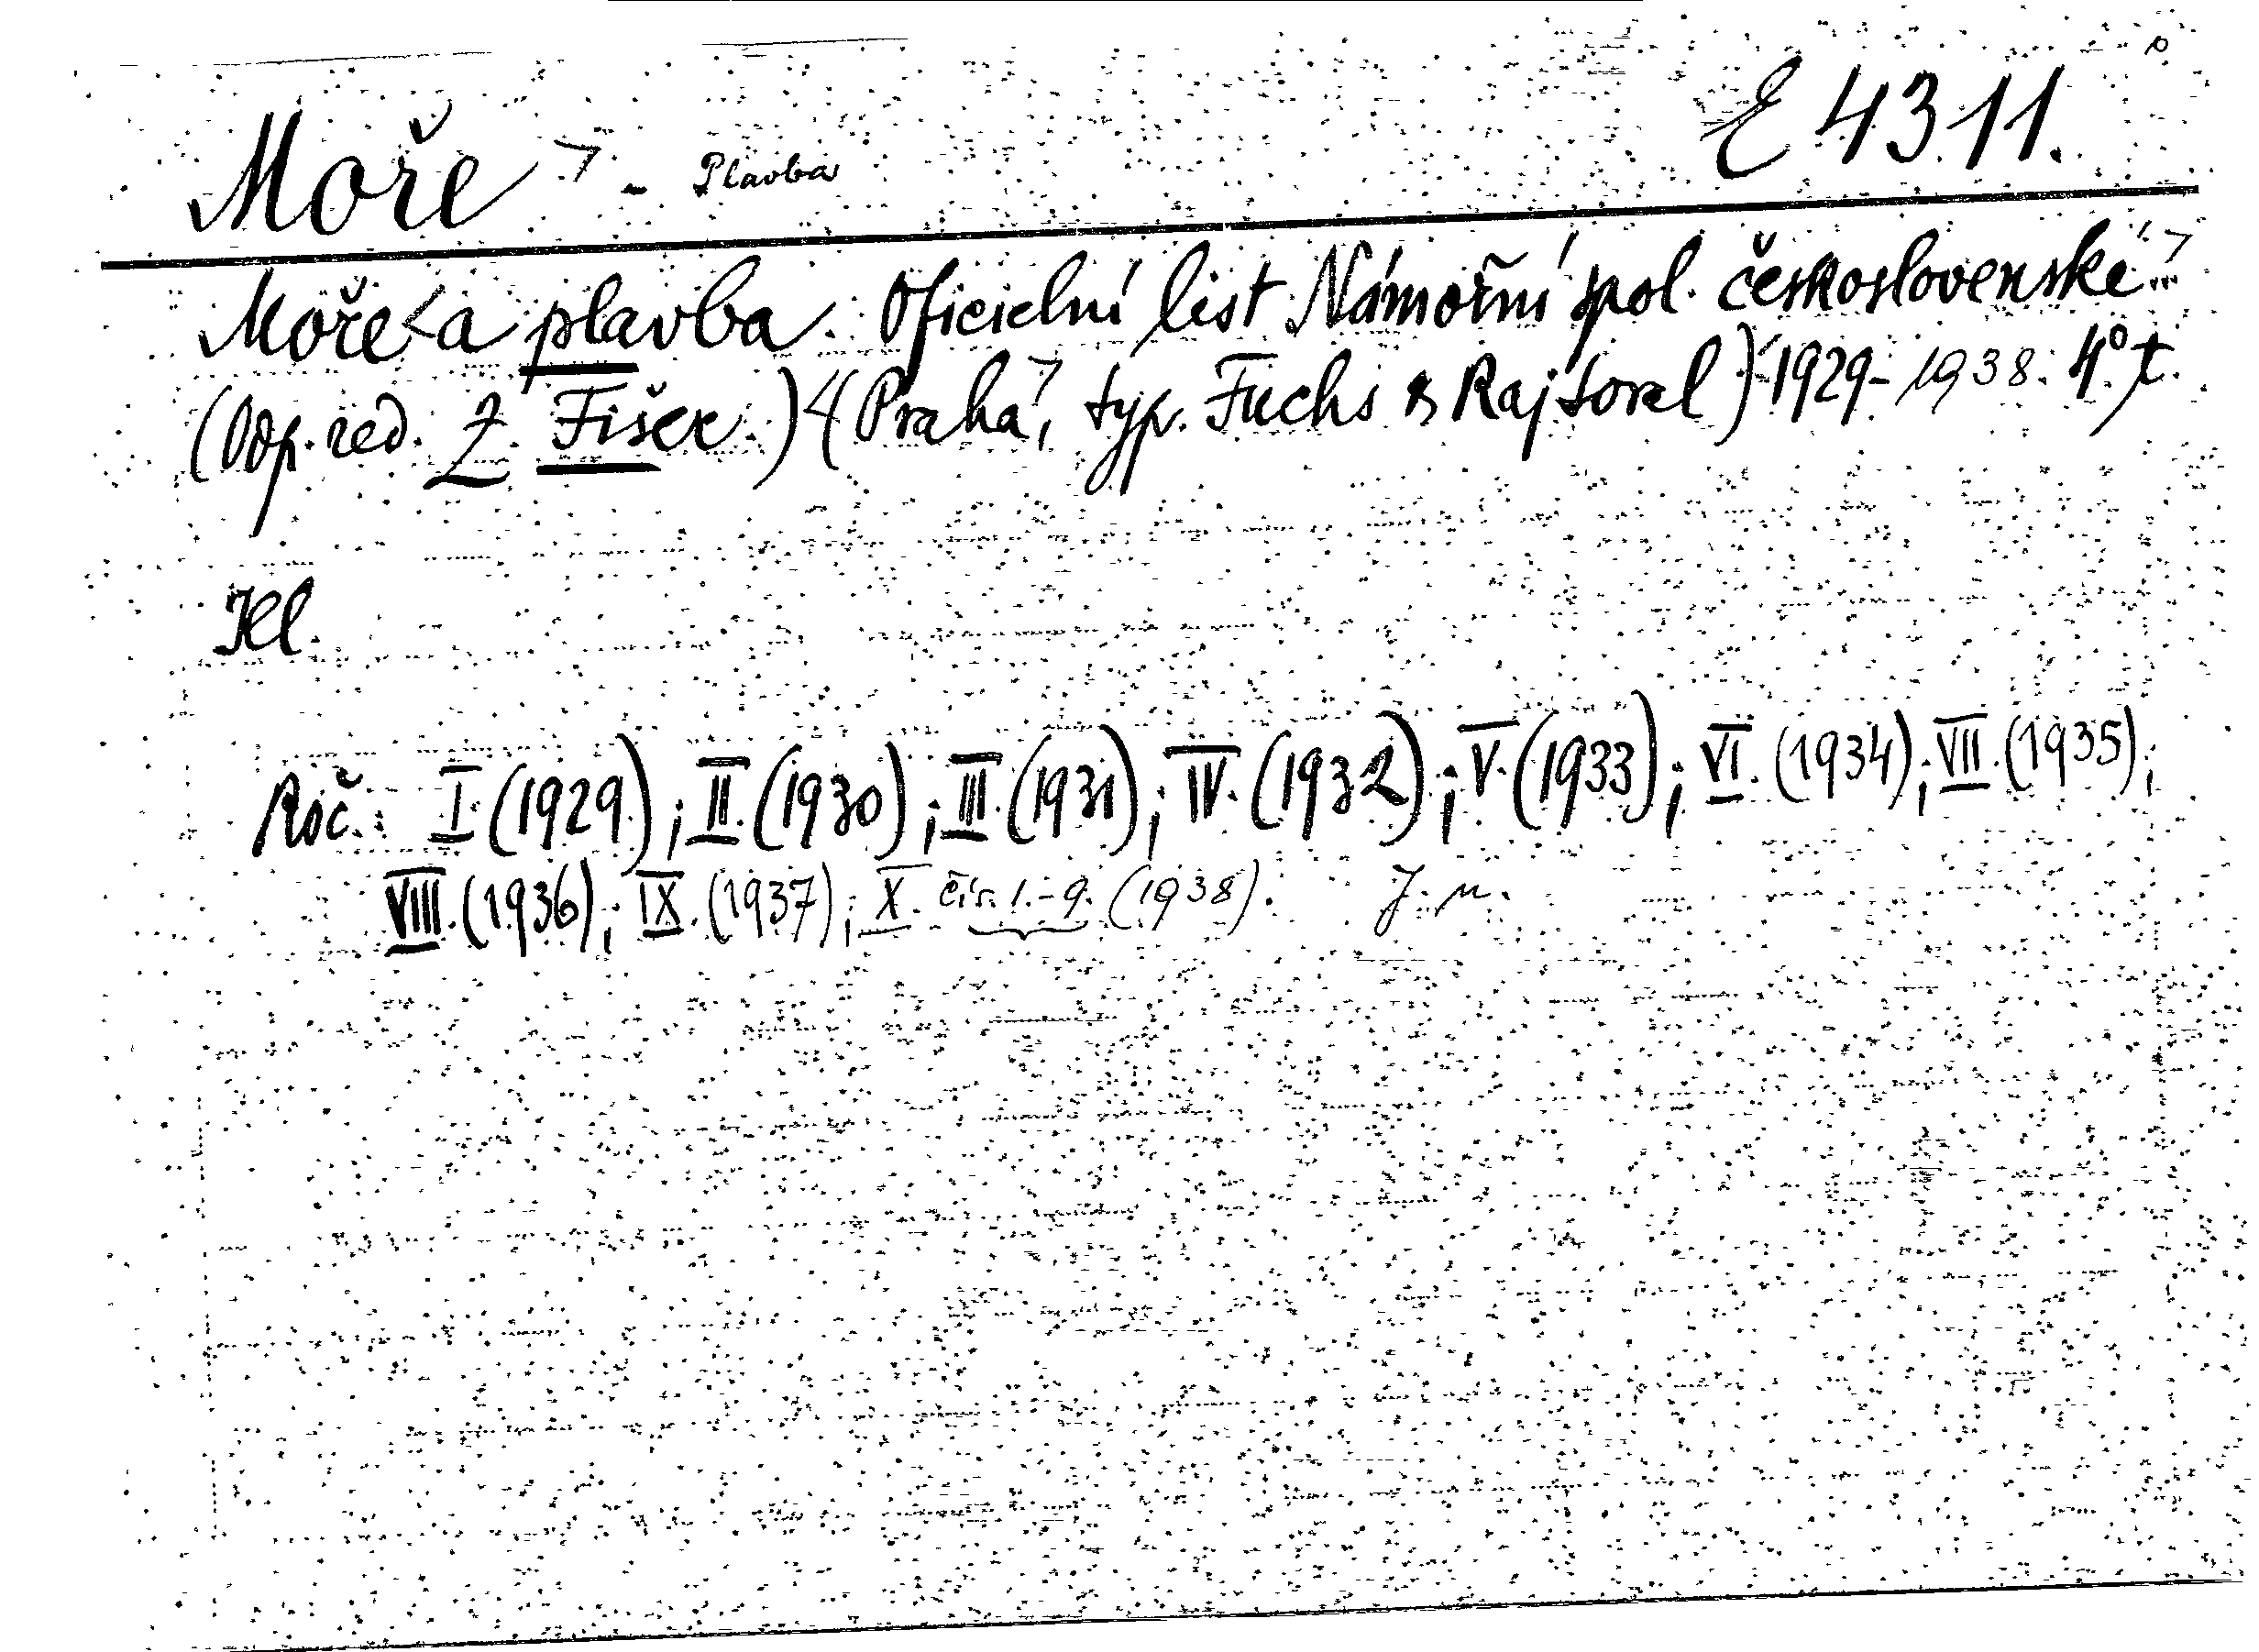 Moře - Plavba E 4311.
Moře a plavba. Oficielní list Námořní spol. československé.
(Odp. red. Z. Fišer.) (Praha, typ. Fuchs & Rajtoral) 1929-1938. 4° t.
Ill.
Roč. I. (1929); II. (1930); III. (1931); IV. (1932); V. (1933); VI. (1934); VII. (1935);
VIII. (1936); IX. (1937); X. čís. 1.-9. (1938). J. n.